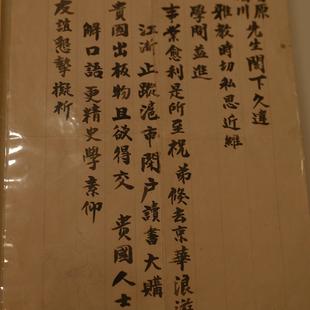 原先生閣下久違
川
雅教時切私思近維
學問並進
事業愈利是所至祝弟倏去京華浪遊
江浙止蹤滬市閉戶讀書大購
貴國出板物且欲得交貴國人士
解口語更精史學素仰
友誼懇摯擬祈